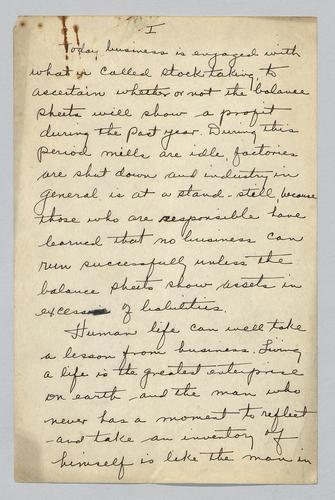 I
Today business is engaged with
what is called stock-taking, to
ascertain whether or not the balance
sheets will show a profit
during the Past year. During this
period mills are idle, factories
are shut down and industry in
general is at a stand-still, because
those who are responsible have
learned that no business can
run successfully unless the
balance sheets show assets in
excess of liabilities.
Human life can well take
a lesson from business. Living
a life is the greatest enterprise
on earth - and the man who
never has a moment to reflect
- and take an inventory of
himself is like the man in